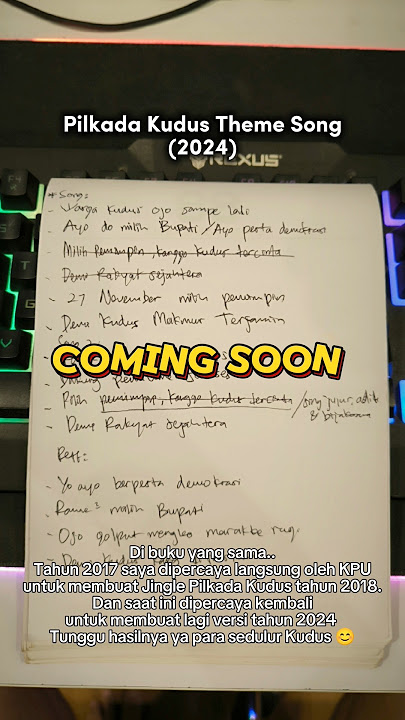 Pilkada Kudus Theme Song
(2024)
REXUS
* Song:
- Warga Kudus ojo sampe lali
- Ayo do milih Bupati / Ayo pesta demokrasi
- Milih pemimpin, kanggo kudus tercinta
- Demi Rakyat sejahtera
- 27 November milih pemimpin
- Demi Kudus Makmur Terjamin
COMING SOON
- Pilih pemimpin, kanggo kudus tercinta / song jujur, adil
& bijaksana
- Demi Rakyat sejahtera
Reff:
- Yo ayo berpesta demokrasi
- Rame² milih Bupati
- Ojo golput
Di buku yang sama..
Tahun 2017 saya dipercaya langsung oleh KPU
untuk membuat Jingle Pilkada Kudus tahun 2018.
Dan saat ini dipercaya kembali
untuk membuat lagi versi tahun 2024
Tunggu hasilnya ya para sedulur Kudus 😊